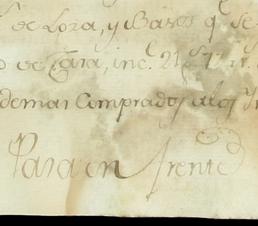 de Loza, y Basos q.e se
de Cara, inc. 21 
demas Comprados a los
Pasa en frente